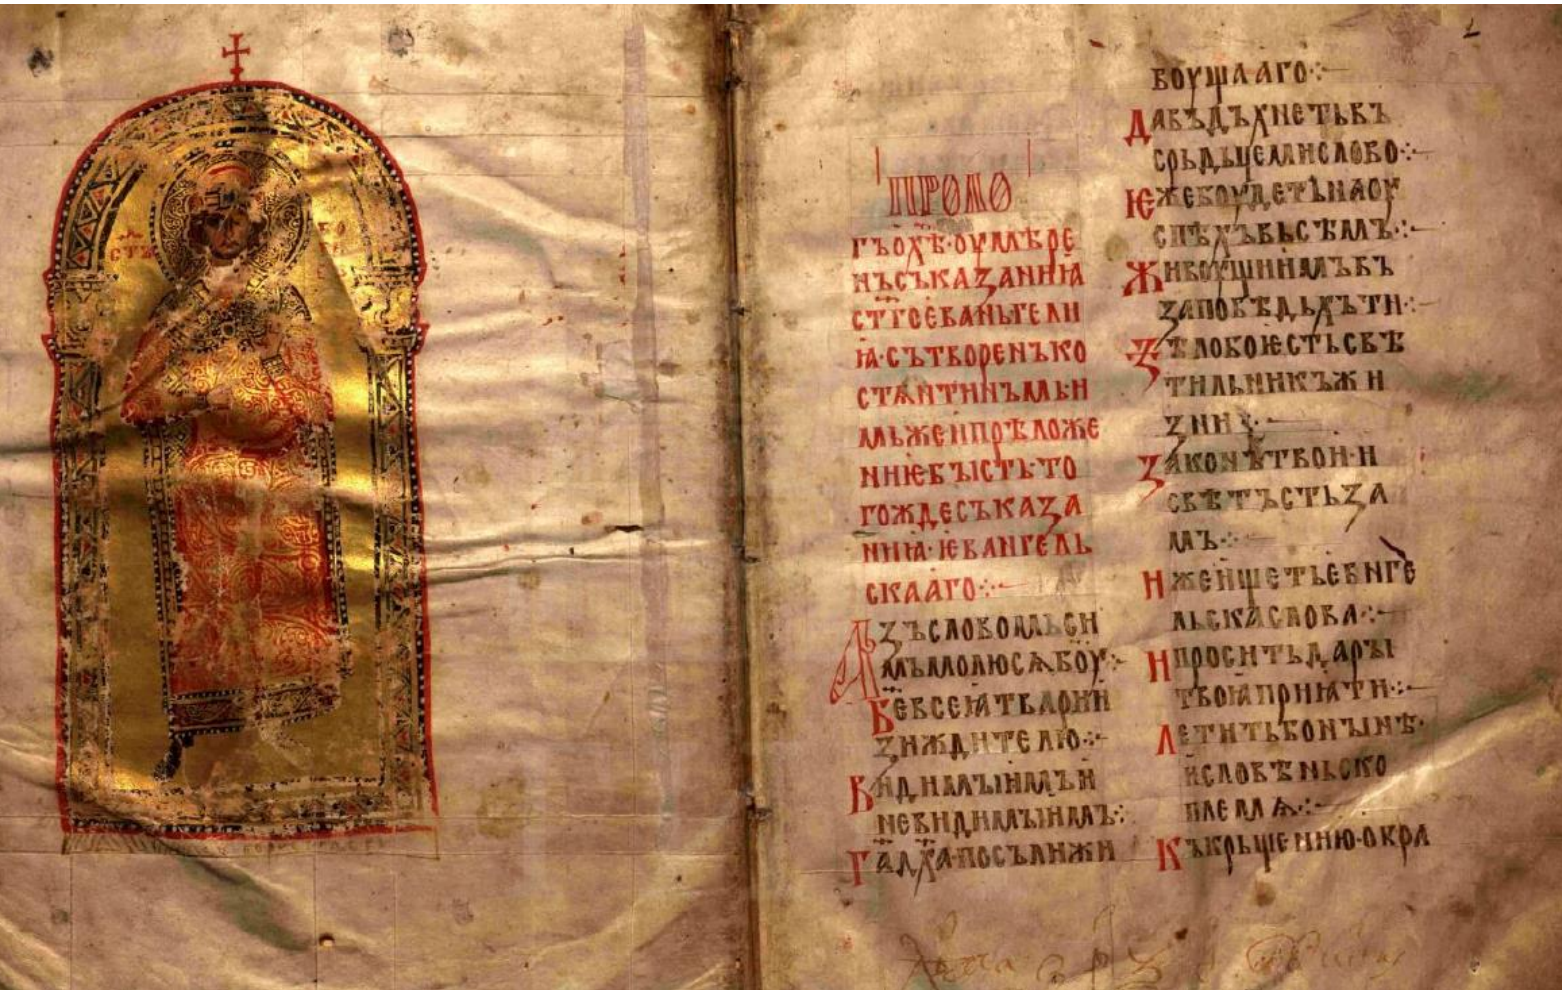 ПРОЛО
гъ о х҃ѣ · оумѣре
нъ съказаниꙗ
ст҃го еваньгели
ꙗ · сътворенъ ко
стѧнтинъмь и
мьже и прѣложе
ниѥ бысть · то
гожде съказа
ниꙗ · ѥвангель
скааго ⁘
Азъ словомь си
мь молюсѧ боу ⁘
Б҃е всеꙗ твари и
зиждителю ⁘
Видимыимъ и
невидимыимъ ⁘
Г҃а д҃ха посъли жи
воущааго ⁘
Да въдъхнеть въ
срьдьце ми слово ⁘
Ѥже боудеть на оу
спѣхъ вьсѣмъ ⁘
Живоущиимъ въ
заповѣдьхъ ти ⁘
Ѕѣло бо ѥсть свѣ
тильникъ жи
зни ⁘
Законъ твои · и
свѣтъ стьза
мъ ⁘
Иже ищеть еѵ҃нге
льска слова ⁘
И просить дары
твоꙗ приꙗти ⁘
Летить бо нынѣ ·
и словѣньско
племѧ ⁘
Къ крьщению · о кра